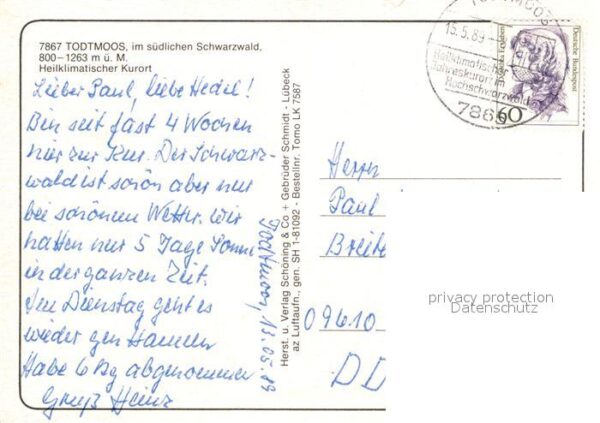 7867 TODTMOOS, im südlichen Schwarzwald,
800–1263 m ü. M.
Heilklimatischer Kurort
Lieber Paul, liebe Hedel!
Bin seit fast 4 Wochen
hier zur Kur. Der Schwarz-
wald ist schön aber nur
bei schönem Wetter. Wir
hatten nur 5 Tage Sonne
in der ganzen Zeit.
Am Dienstag geht es
wieder gen
Habe 6 kg abgenommen
Gruß Heinz
Todtmoos, 13.05.89
Herst. u. Verlag Schöning & Co + Gebrüder Schmidt · Lübeck
az Luftaufn., gen. SH 1-81092 - Bestellnr. Tomo LK 7587
TODTMOOS
15.5.89
Heilklimatischer
Jahreskurort im
Hochschwarzwald
7867
Deutsche Bundespost
60
Herrn
Paul
Breite
09610
DD
privacy protection
Datenschutz